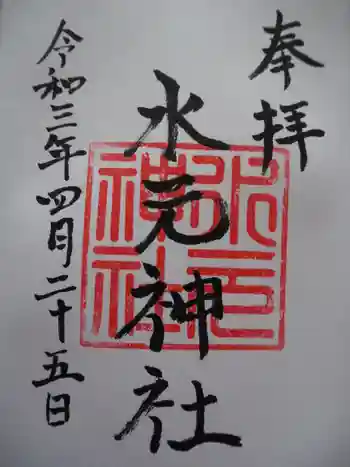 奉拝
水元神社
令和三年四月二十五日
水元
神社